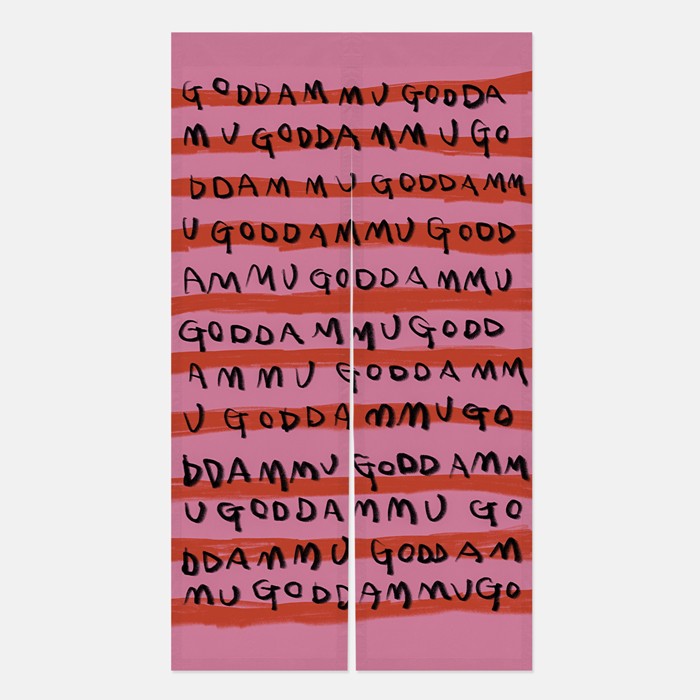 GODDAMMU GODDA
MU GODDAMMUGO
DDAM MU GODDAMM
U GODDAMMU GODD
AMMU GODDAMMU
GODDAMMUGODD
AMMU GODDAMM
U GODDAMMUGO
DDAMMU GODD AMM
UGODDAMMU GO
DDAMMU GODDAM
MU GODDAMMUGO